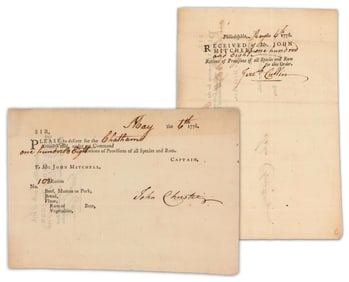 May the 6th 1776.
SIR,
PLEASE to deliver for the Chatham
Armed Boat, under my Command
one hundred & eight Rations of Provisions of all Species and Rum.
CAPTAIN.
To Mr. JOHN MITCHELL
No. 108 Rations
Beef, Mutton or Pork,
Bread,
Flour,
Rum or Beer,
Vegetables,
Philadelphia, May the 6th 1776.
RECEIVED of Mr. JOHN
MITCHELL one hundred
and eight
Rations of Provisions of all Species and Rum
Cullin